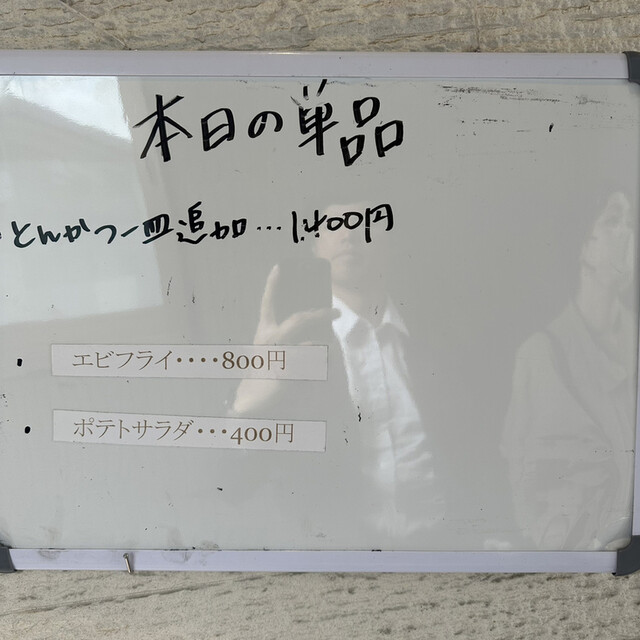 本日の単品
・とんかつ一皿追加…1,400円
・エビフライ・・・・800円
・ポテトサラダ・・・400円